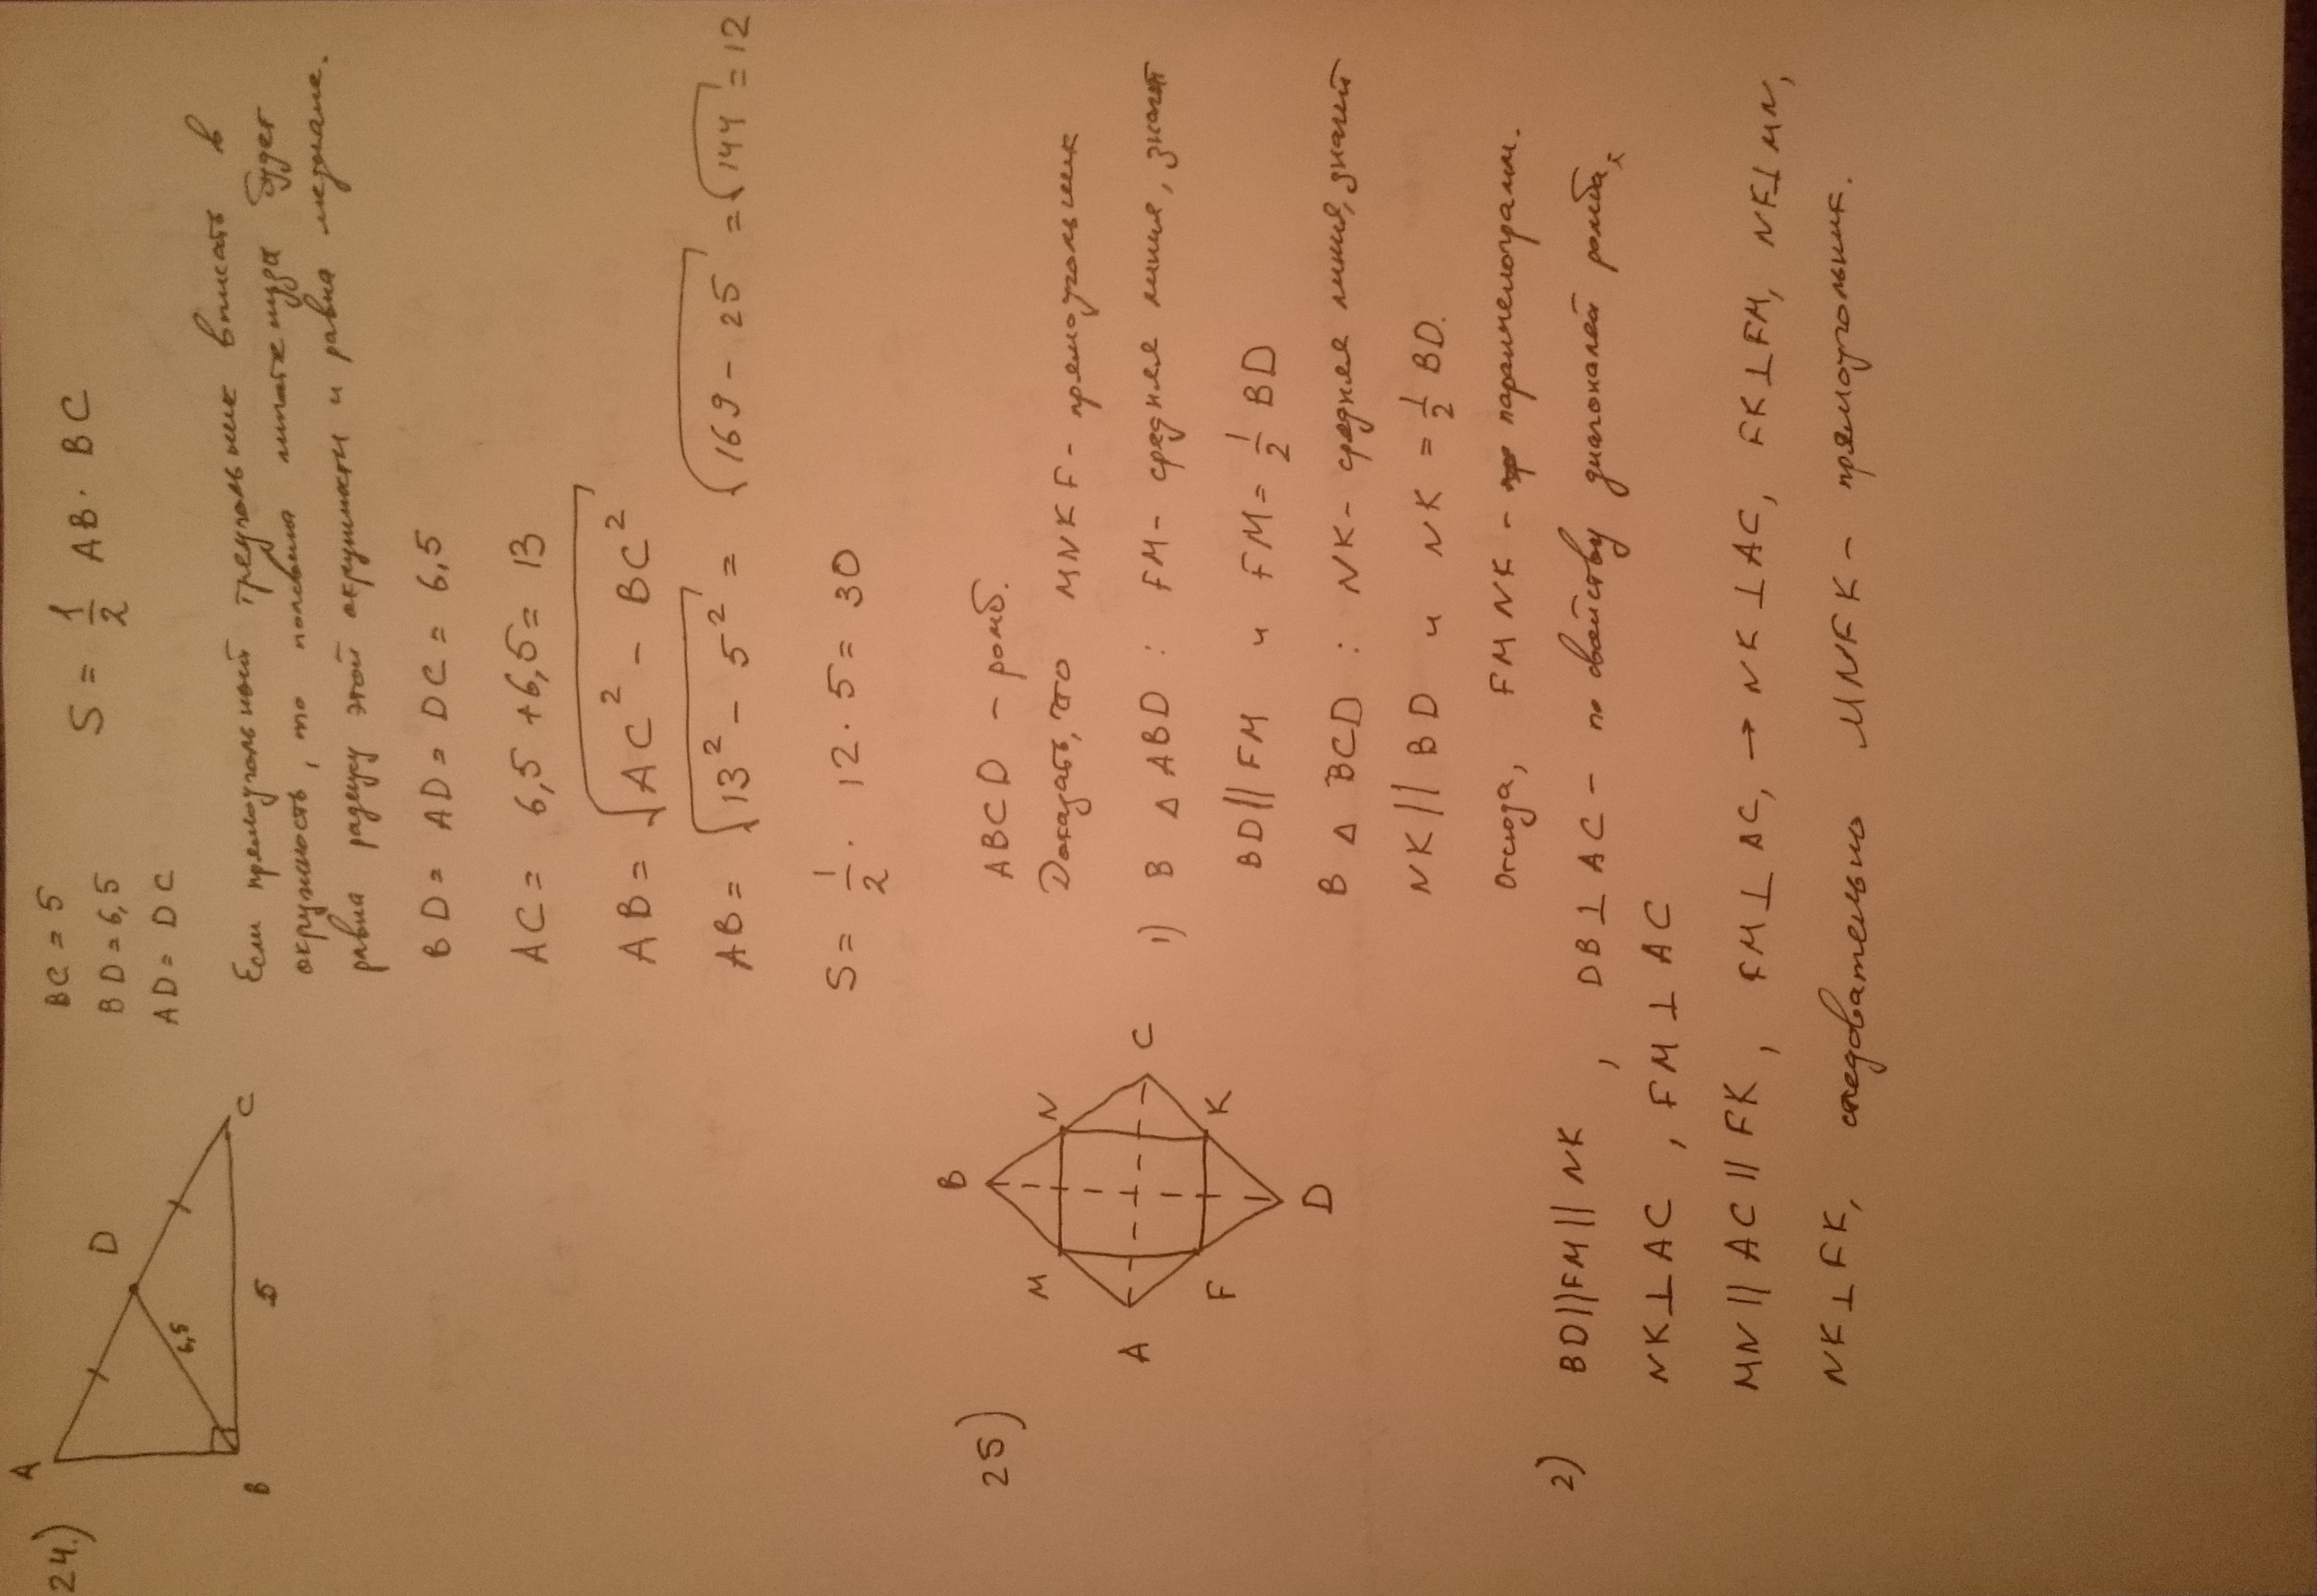 24.)
A
D
6,5
B
5
C
BC = 5
BD = 6,5
AD = DC
S = 1/2 AB · BC
Если прямоугольный треугольник вписать в
окружность, то половина гипотенузы будет
равна радиусу этой окружности и равна медиане.
BD = AD = DC = 6,5
AC = 6,5 + 6,5 = 13
AB = √(AC² - BC²)
AB = √(13² - 5²) = √(169 - 25) = √144 = 12
S = 1/2 · 12 · 5 = 30
25)
B
M
N
A
C
F
K
D
ABCD - ромб.
Доказать, что MNKF - прямоугольник
1) В △ ABD : FM - средняя линия, значит
BD || FM и FM = 1/2 BD
В △ BCD : NK - средняя линия, значит
NK || BD и NK = 1/2 BD.
Отсюда, FMNK - параллелограмм.
2) BD || FM || NK , DB ⊥ AC - по свойству диагоналей ромба,
NK ⊥ AC , FM ⊥ AC
MN || AC || FK , FM ⊥ AC, → NK ⊥ AC, FK ⊥ FM, NK ⊥ MN,
NK ⊥ FK, следовательно MNFK - прямоугольник.